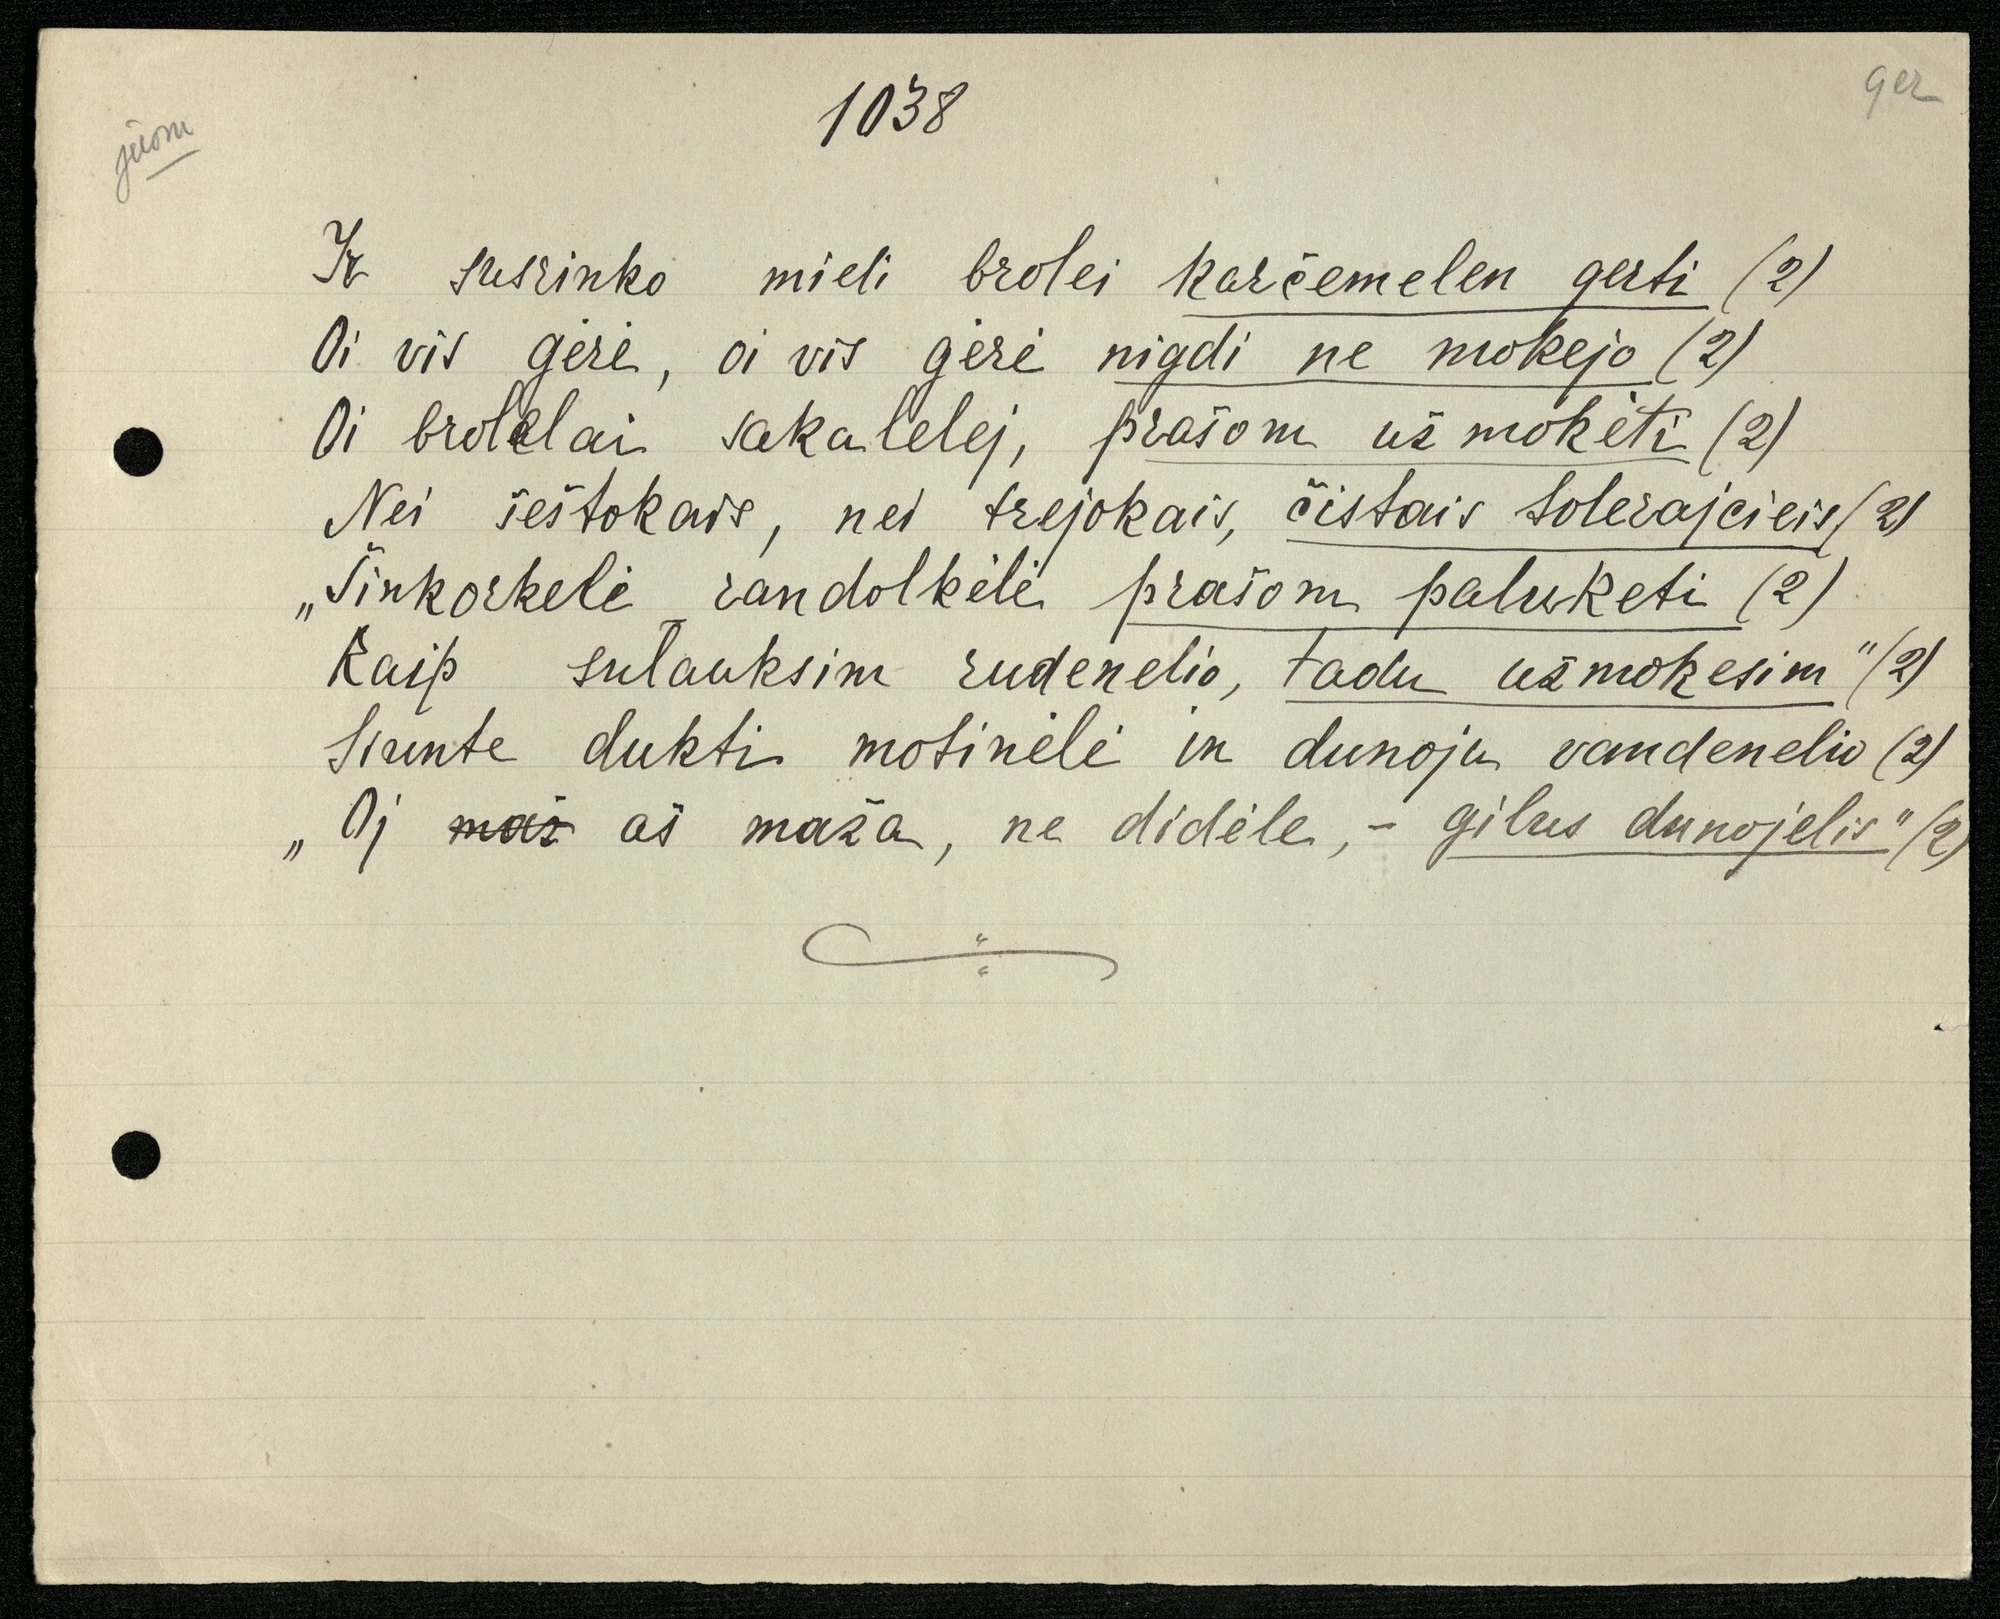 1038
ger
jūom
Ir susrinko mieli brolei karčemelen gerti (2)
Oi vis gėrė, oi vis gėrė nigdi ne mokejo (2)
Oi brolelai sakalelej, prašom už mokėti (2)
Nei šeštokais, nei trejokais, čistais tolerajcieis (2)
„Šinkorkelė randolkėlė prašom paluketi (2)
Kaip sulauksim rudenelio, tadu užmokesim" (2)
Siunte dukti motinėlė in dunoju vandenelio (2)
„Oj maž aš maža, ne didėle, - gilus dunojelis" (2)